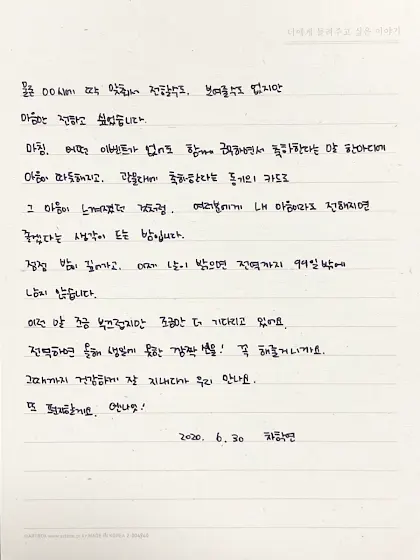 너에게 들려주고 싶은 이야기
물론 00시에 딱 맞춰서 전할수도, 보여줄수도 없지만
마음만은 전하고 싶었습니다.
마침, 어떤 이벤트가 없어도 함께 근무하면서 축하한다는 말 한마디에
마음이 따뜻해지고, 관물대에 축하한다는 동기의 카드로
그 마음이 느껴졌던 것처럼, 여러분에게 내 마음이라도 전해지면
좋겠다는 생각이 드는 밤입니다.
점점 밤이 깊어가고, 이제 날이 밝으면 전역까지 99일밖에
남지 않습니다.
이런 말 조금 부끄럽지만 조금만 더 기다리고 있어요.
전역하면 올해 생일에 못한 깜짝 선물! 꼭 해줄거니까요.
그때까지 건강하게 잘 지내다가 우리 만나요.
또 편지할게요. 엔나잇!
2020. 6. 30 차학연